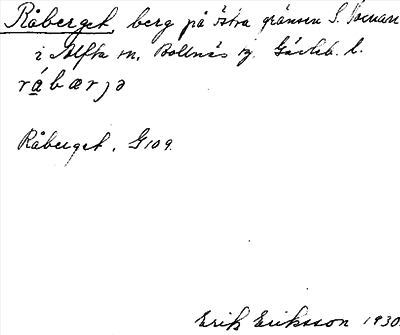 Råberget, berg på östra gränsen S.
i Alfta sn, Bollnäs tg. Gävleb. l.
råbærjə
Råberget. G109.
Erik Eriksson 1930